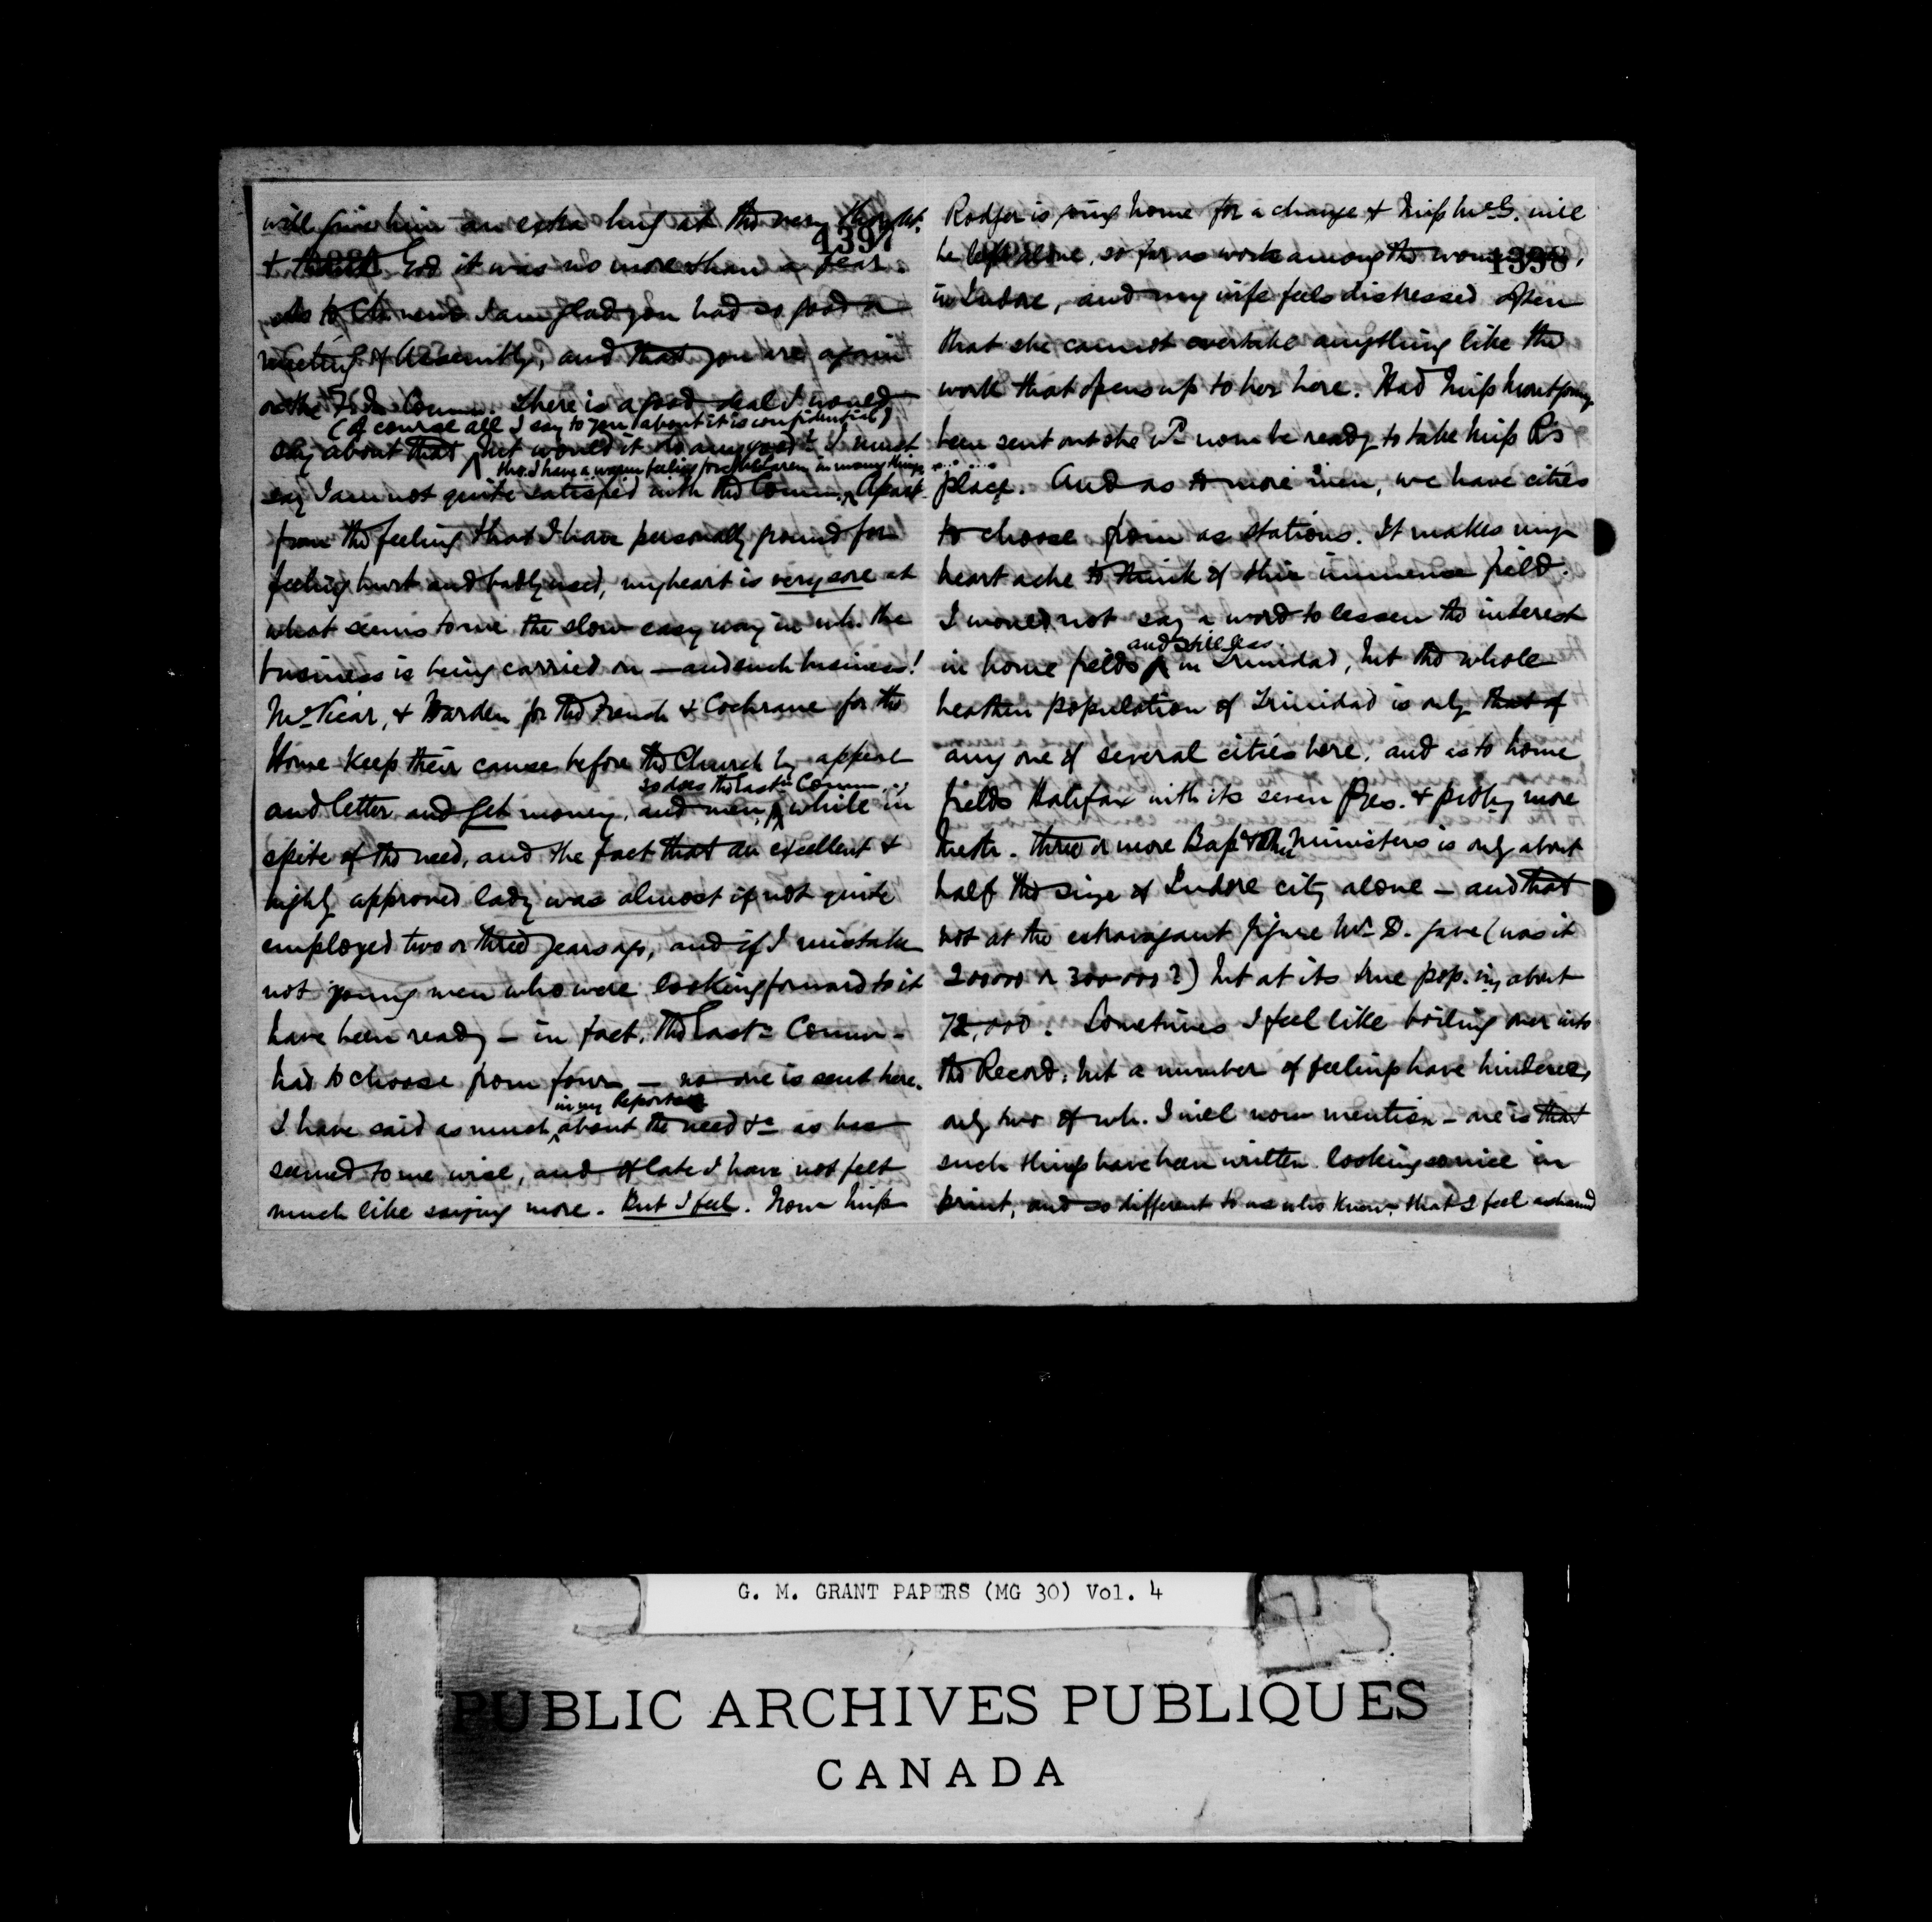 will give him an extra hug at the very thought.
1397
& thank God it was no more than a fear.
As to Ch. news I am glad you had so good a
meeting of Assembly, and that you are again
on the Fn. Comm. There is a good deal I would
(Of course all I say to you about it is confidential)
say about that but would it do any good? I must
tho. I have a warm feeling for in many things
say I am not quite satisfied with the Comm. Apart
from the feeling that I have personally ground for
feeling hurt and badly used, my heart is very sore at
what seems to me the slow easy way in wh. the
business is being carried on — and such business!
McVicar, & Warden for the French & Cochrane for the
Home keep their cause before the Church by appeal
so does the Eastn Comm.
and letter and get money, and men, while in
spite of the need, and the fact that an excellent &
highly approved lady was almost if not quite
employed two or three years ago, and if I mistake
not young men who were looking forward to it
have been ready — in fact, the Eastn Comm.
had to choose from four — no one is sent here.
in my Reports
I have said as much about the need &c as has
seemed to me wise, and of late I have not felt
much like saying more. But I feel. Now Miss
Rodger is going home for a change & Miss McG. will
1398
be left alone, so far as work among the women,
in Indore, and my wife feels distressed often
that she cannot overtake anything like the
work that opens up to her here. Had Miss Montgomy
been sent out she wd now be ready to take Miss R's
place. And as to more men, we have cities
to choose from as stations. It makes my
heart ache to think of this immense field.
I would not say a word to lessen the interest
and still less
in home fields in Trinidad, but the whole
heathen population of Trinidad is only that of
any one of several cities here, and as to home
fields Halifax with its seven Pres. & probly more
Meth. three or more Bap & Ministers is only about
half the size of Indore city alone — and that
not at the extravagant figure Mr. D. gave (was it
200000 or 300000?) but at its true pop. about
72,000. Sometimes I feel like boiling over into
the Record, but a number of feelings have hindered,
only two of wh. I will now mention — one is that
such things have been written looking so nice in
print, and so different to us who know, that I feel ashamed
G. M. GRANT PAPERS (MG 30) Vol. 4
PUBLIC ARCHIVES PUBLIQUES
CANADA